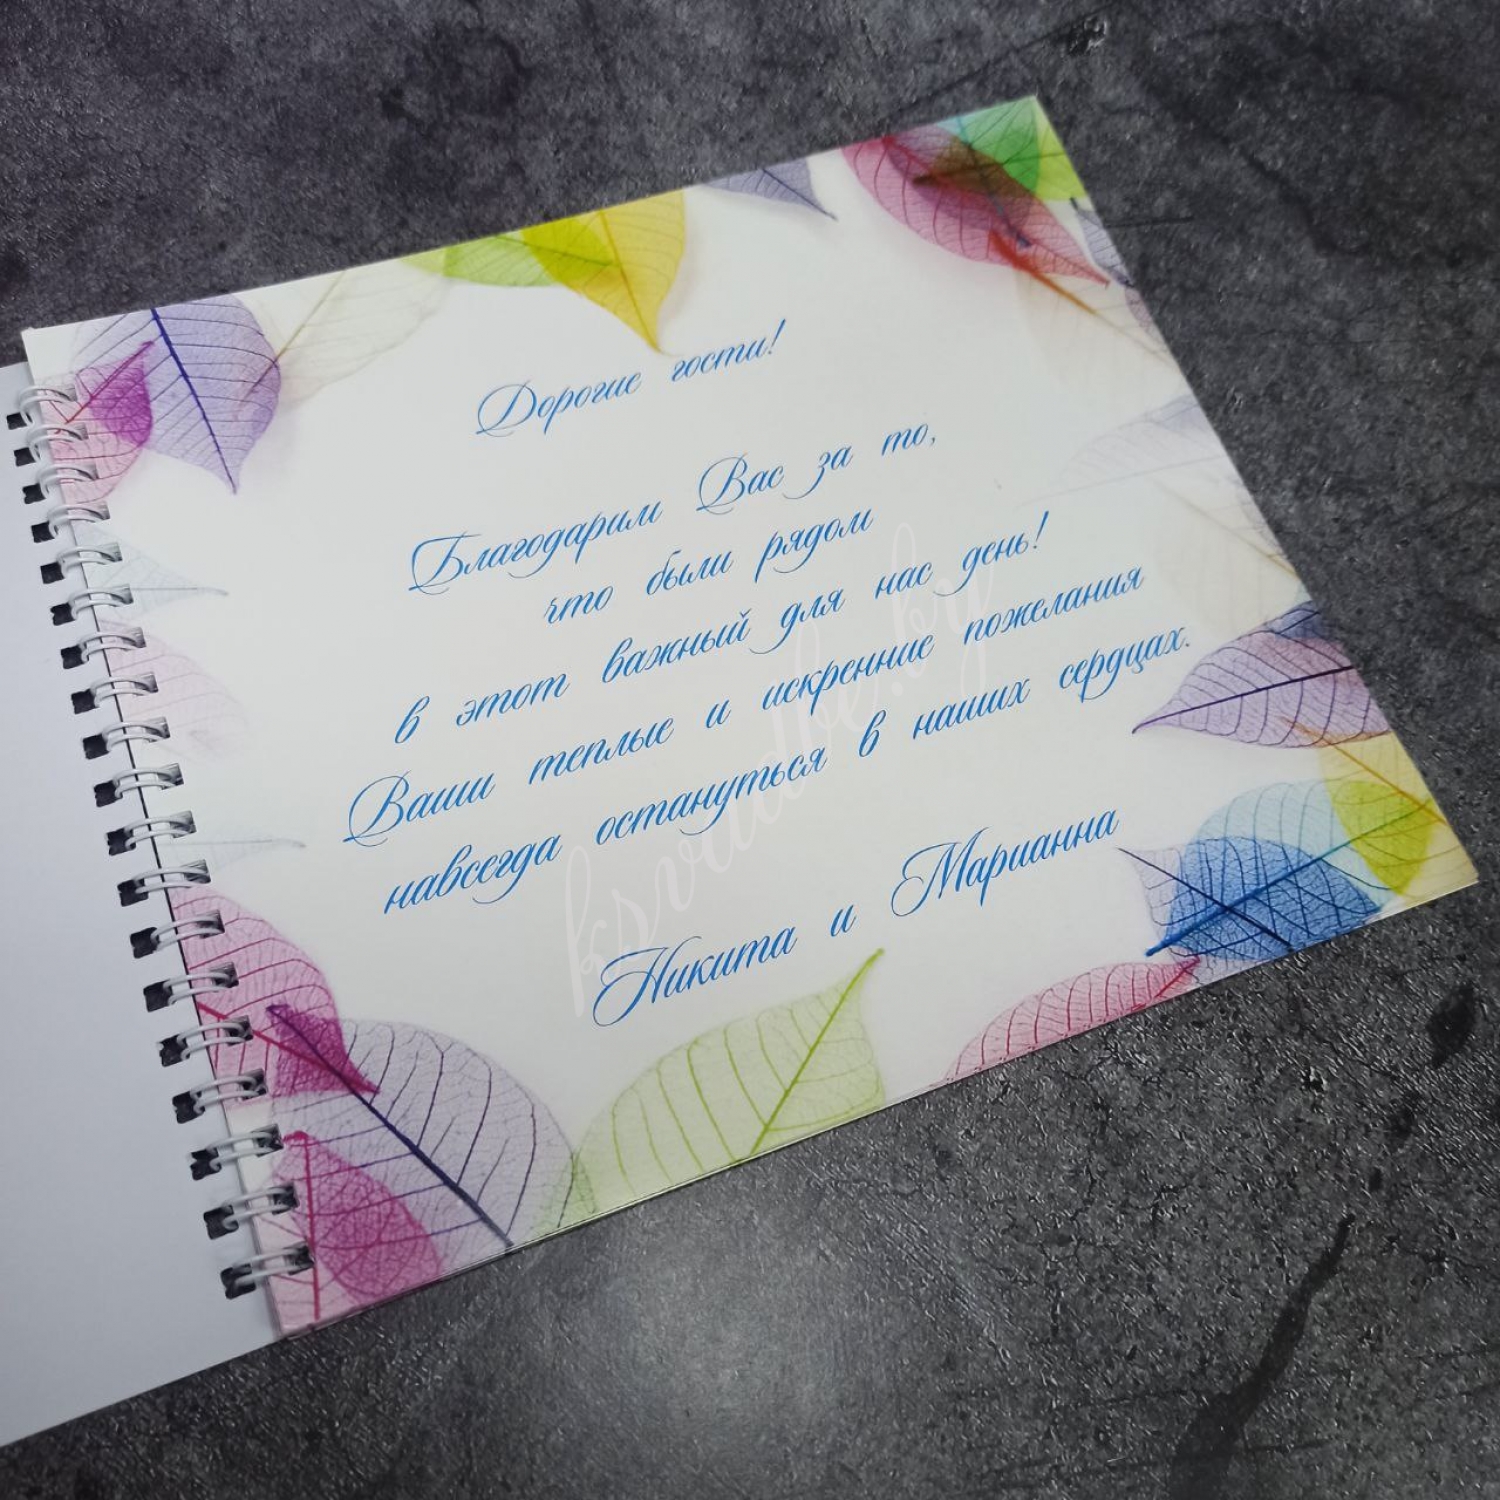 Дорогие гости!
Благодарим Вас за то,
что были рядом
в этот важный для нас день!
Ваши теплые и искренние пожелания
навсегда остануться в наших сердцах.
Никита и Марианна
ksvadbe.by